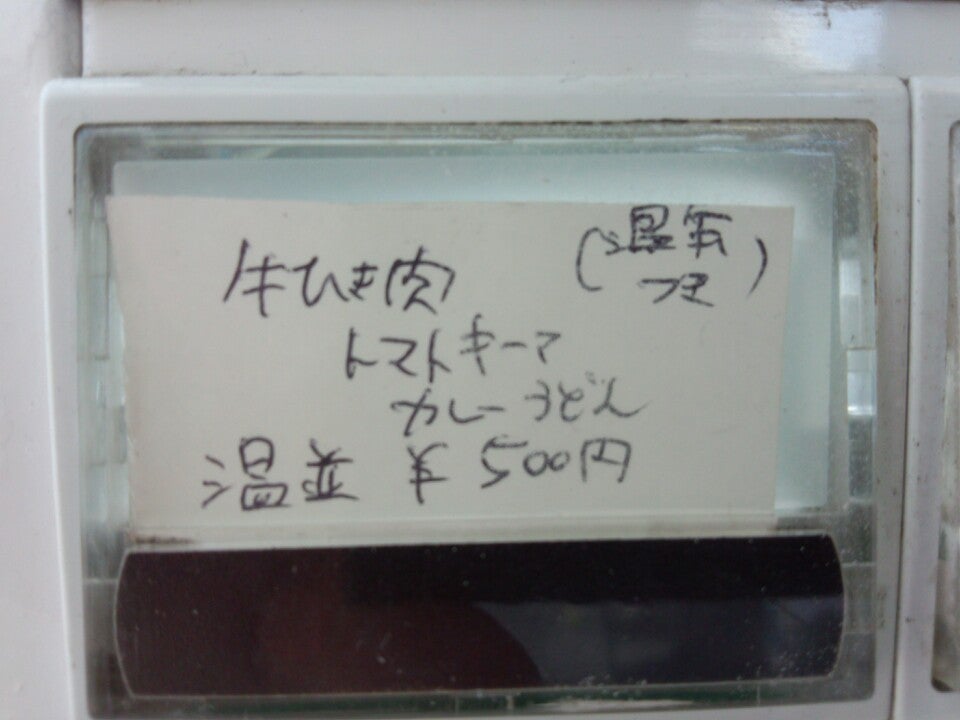 牛ひき肉
(温泉
つき)
トマトキーマ
カレーうどん
温並 ¥500円